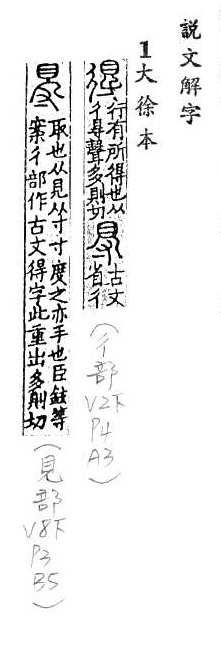 說文解字
1大徐本
得行有所得也从
彳㝵聲多則切㝵古文
省彳
(彳部
V2下
P4
A3)
㝵取也从見从寸寸度之亦手也臣鉉等
案彳部作古文得字此重出多則切
(見部
V8下
P3
B5)